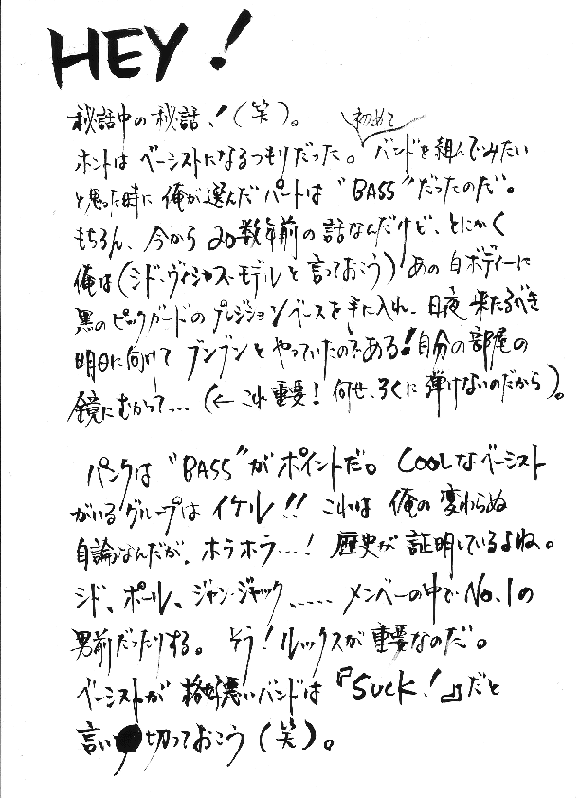 HEY!
秘話中の秘話、!(笑)。
初めて
ホントはベーシストになるつもりだった。バンドを組んでみたい
と思った時に俺が選んだパートは“BASS”だったのだ。
もちろん、今から20数年前の話なんだけど、とにかく
俺は(シド・ヴィシャス・モデルと言っておこう)あの白ボディーに
黒のピックガードのプレシジョンベースを手に入れ、日夜来たるべき
明日に向けてブンブンとやっていたのである!自分の部屋の
鏡にむかって…(←これ重要!何せ、ろくに弾けないのだから)。
パンクは“BASS”がポイントだ。COOLなベーシスト
がいるグループはイケル!!これは俺の変わらぬ
自論なんだが、ホラホラ…!歴史が証明しているよね。
シド、ポール、ジャン・ジャック…… メンバーの中でNo.1の
男前だったりする。そう!ルックスが重要なのだ。
ベーシストが格好悪いバンドは『SUCK!』だと
言い切っておこう(笑)。